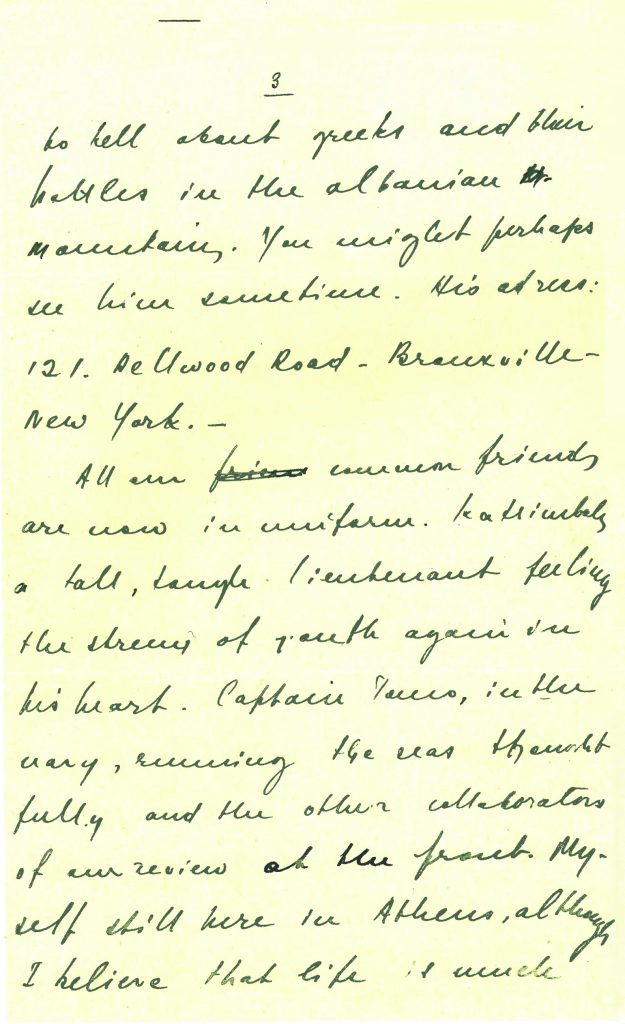 3
to tell about greeks and their
battles in the albanian
mountains. You might perhaps
see him sometime. His adress:
121. Dellwood Road - Bronxville -
New York. -
All our common friends
are now in uniform. Katsimbalis
a tall, tough lieutenant feeling
the strenj of youth again in
his heart. Captain in the
navy, running the seas thought
fully and the other collaborators
of our review at the front. My-
self still here in Athens, although
I believe that life is much